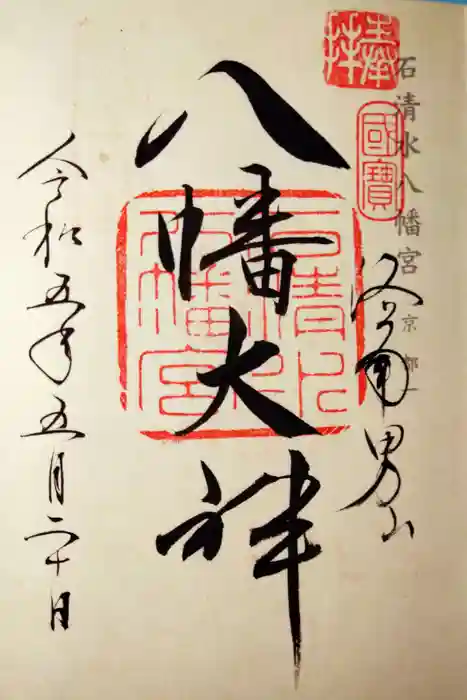 奉拝
石清水八幡宮 京都
國寶
男山
八幡大神
石清水八幡宮
令和五年五月二十日